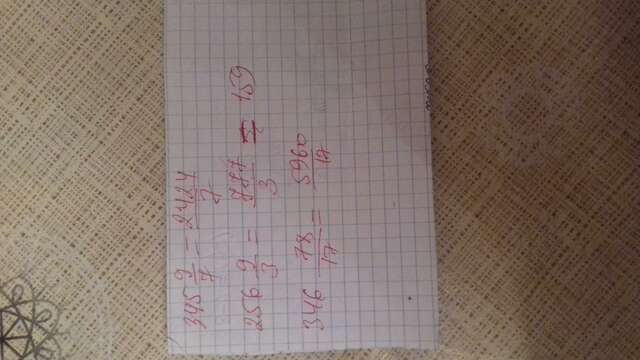 345 9/7 = 2424/7
256 9/3 = 777/3 = 159
346 78/17 = 5960/17